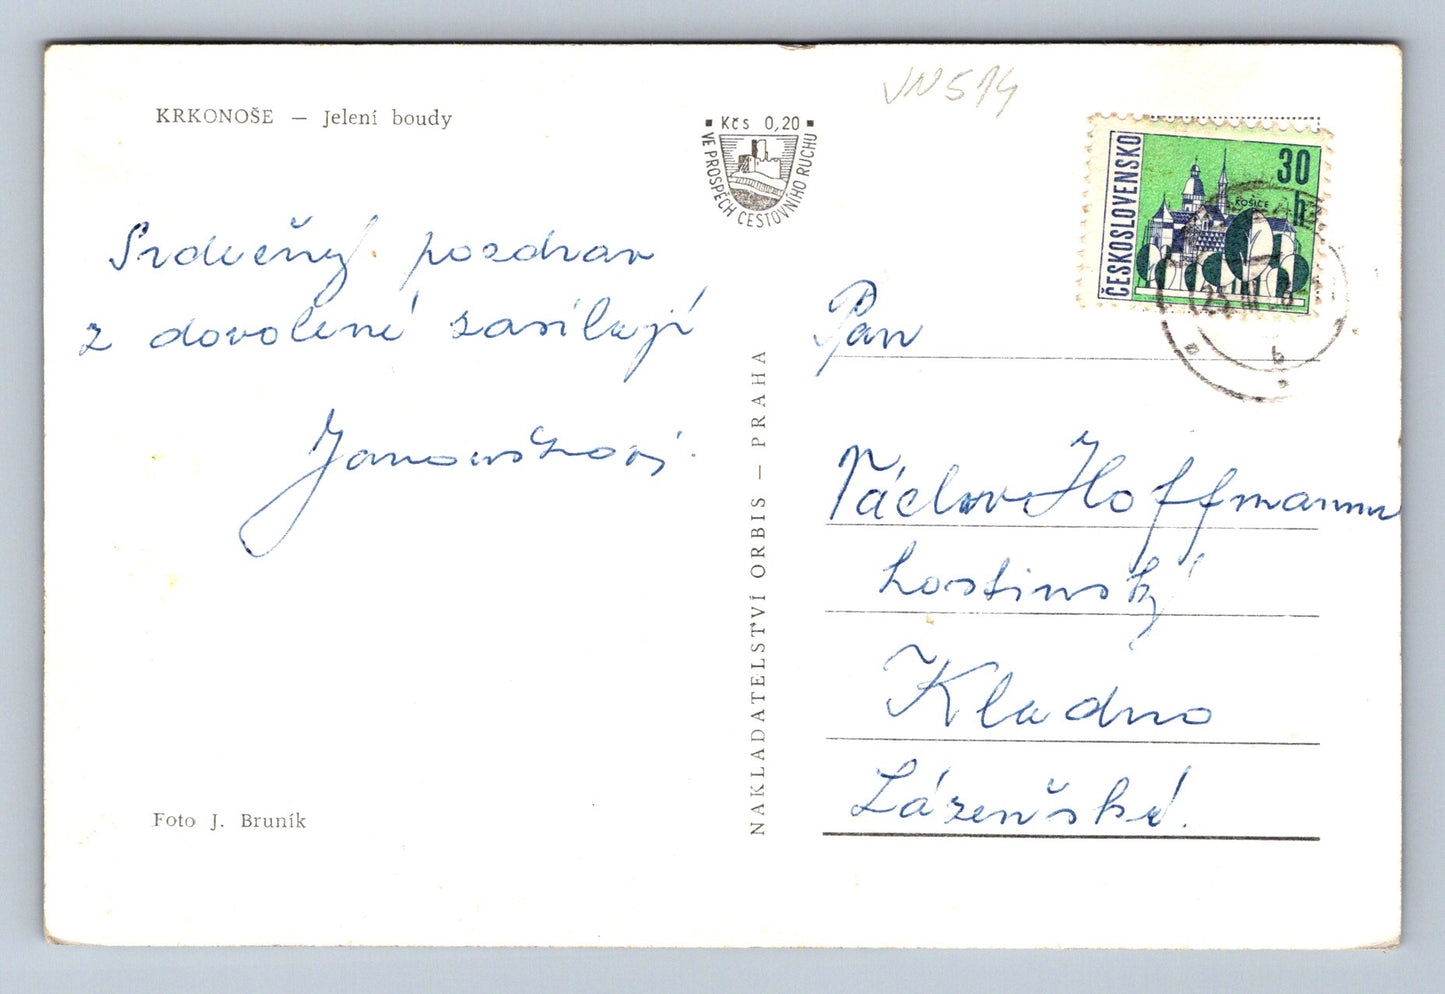 KRKONOŠE — Jelení boudy
VN 514
▪ Kčs 0,20 ▪
VE PROSPĚCH CESTOVNÍHO RUCHU
ČESKOSLOVENSKO
30 h
KOŠICE
Srdečný pozdrav
z dovolené zasílají
Janouškovi.
NAKLADATELSTVÍ ORBIS — PRAHA
Pan
Václav Hoffmann
hostinský
Kladno
Lázeňská.
Foto J. Bruník